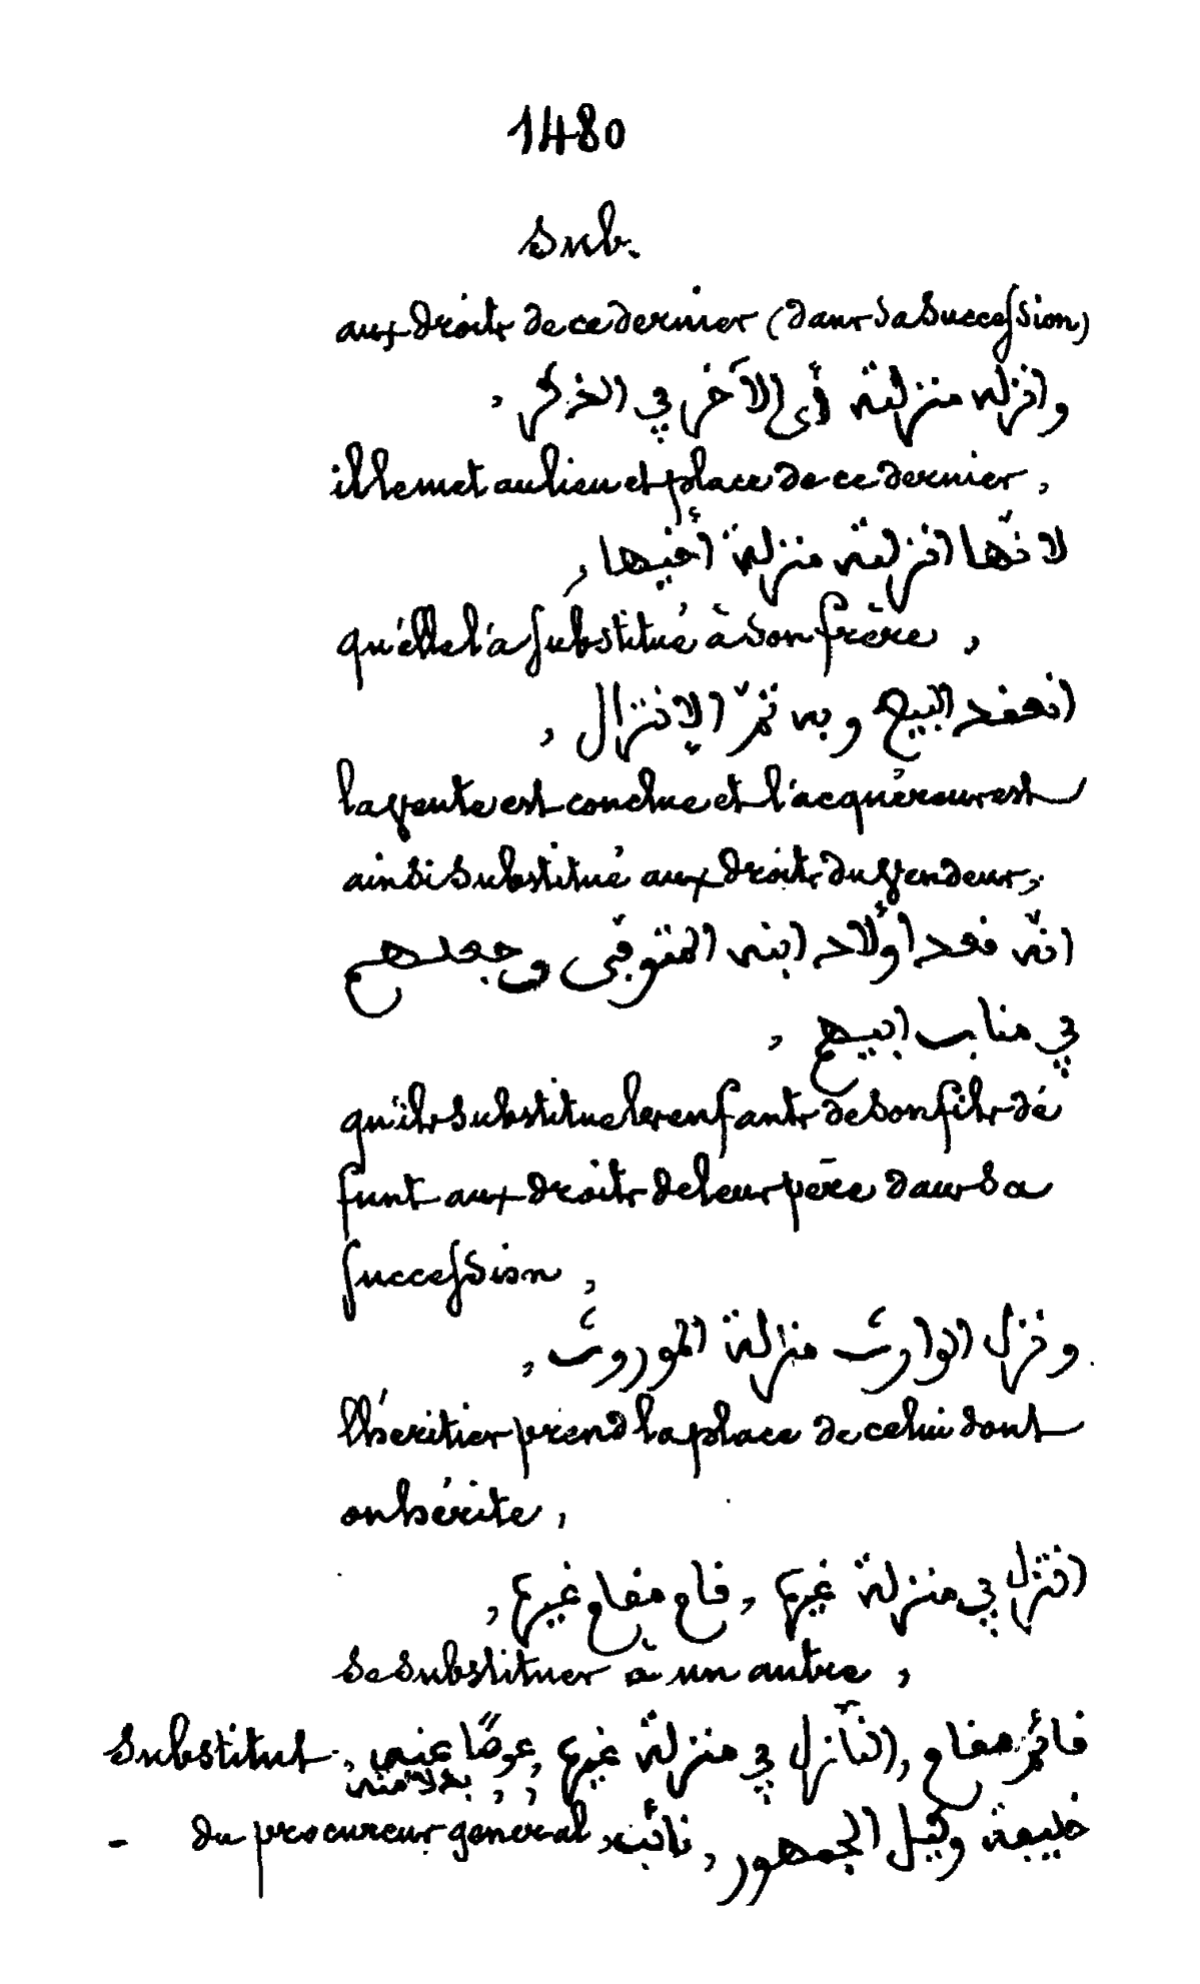 1480
Sub.
aux droits de ce dernier (dans sa succession)
وانزله منزلته أى الآخر في الذكر ,
il le met au lieu et place de ce dernier ,
لانّها انزلته منزلة أخيها ,
qu'elle l'a substitué à son frère ,
انعقد البيع وبه تمّ الإنزال ,
la vente est conclue et l'acquéreur est
ainsi substitué aux droits du vendeur ,
انّه قعد أولاد ابنه المتوفى وجعلهم
في مناب ابيهم ,
qu'ils substitue les enfants de son fils dé
funt aux droits de leur père dans sa
succession ,
ونزل الوارث منزلة الموروث ,
l'héritier prend la place de celui dont
on hérite ,
انتزل في منزلة غيره , قام مقام غيره ,
se substituer à un autre ,
Substitut . قائم مقام , النّازل في منزلة غيره , عوضًا عنه , بدلا منه
- du procureur général , خليفة وكيل الجمهور , نائب